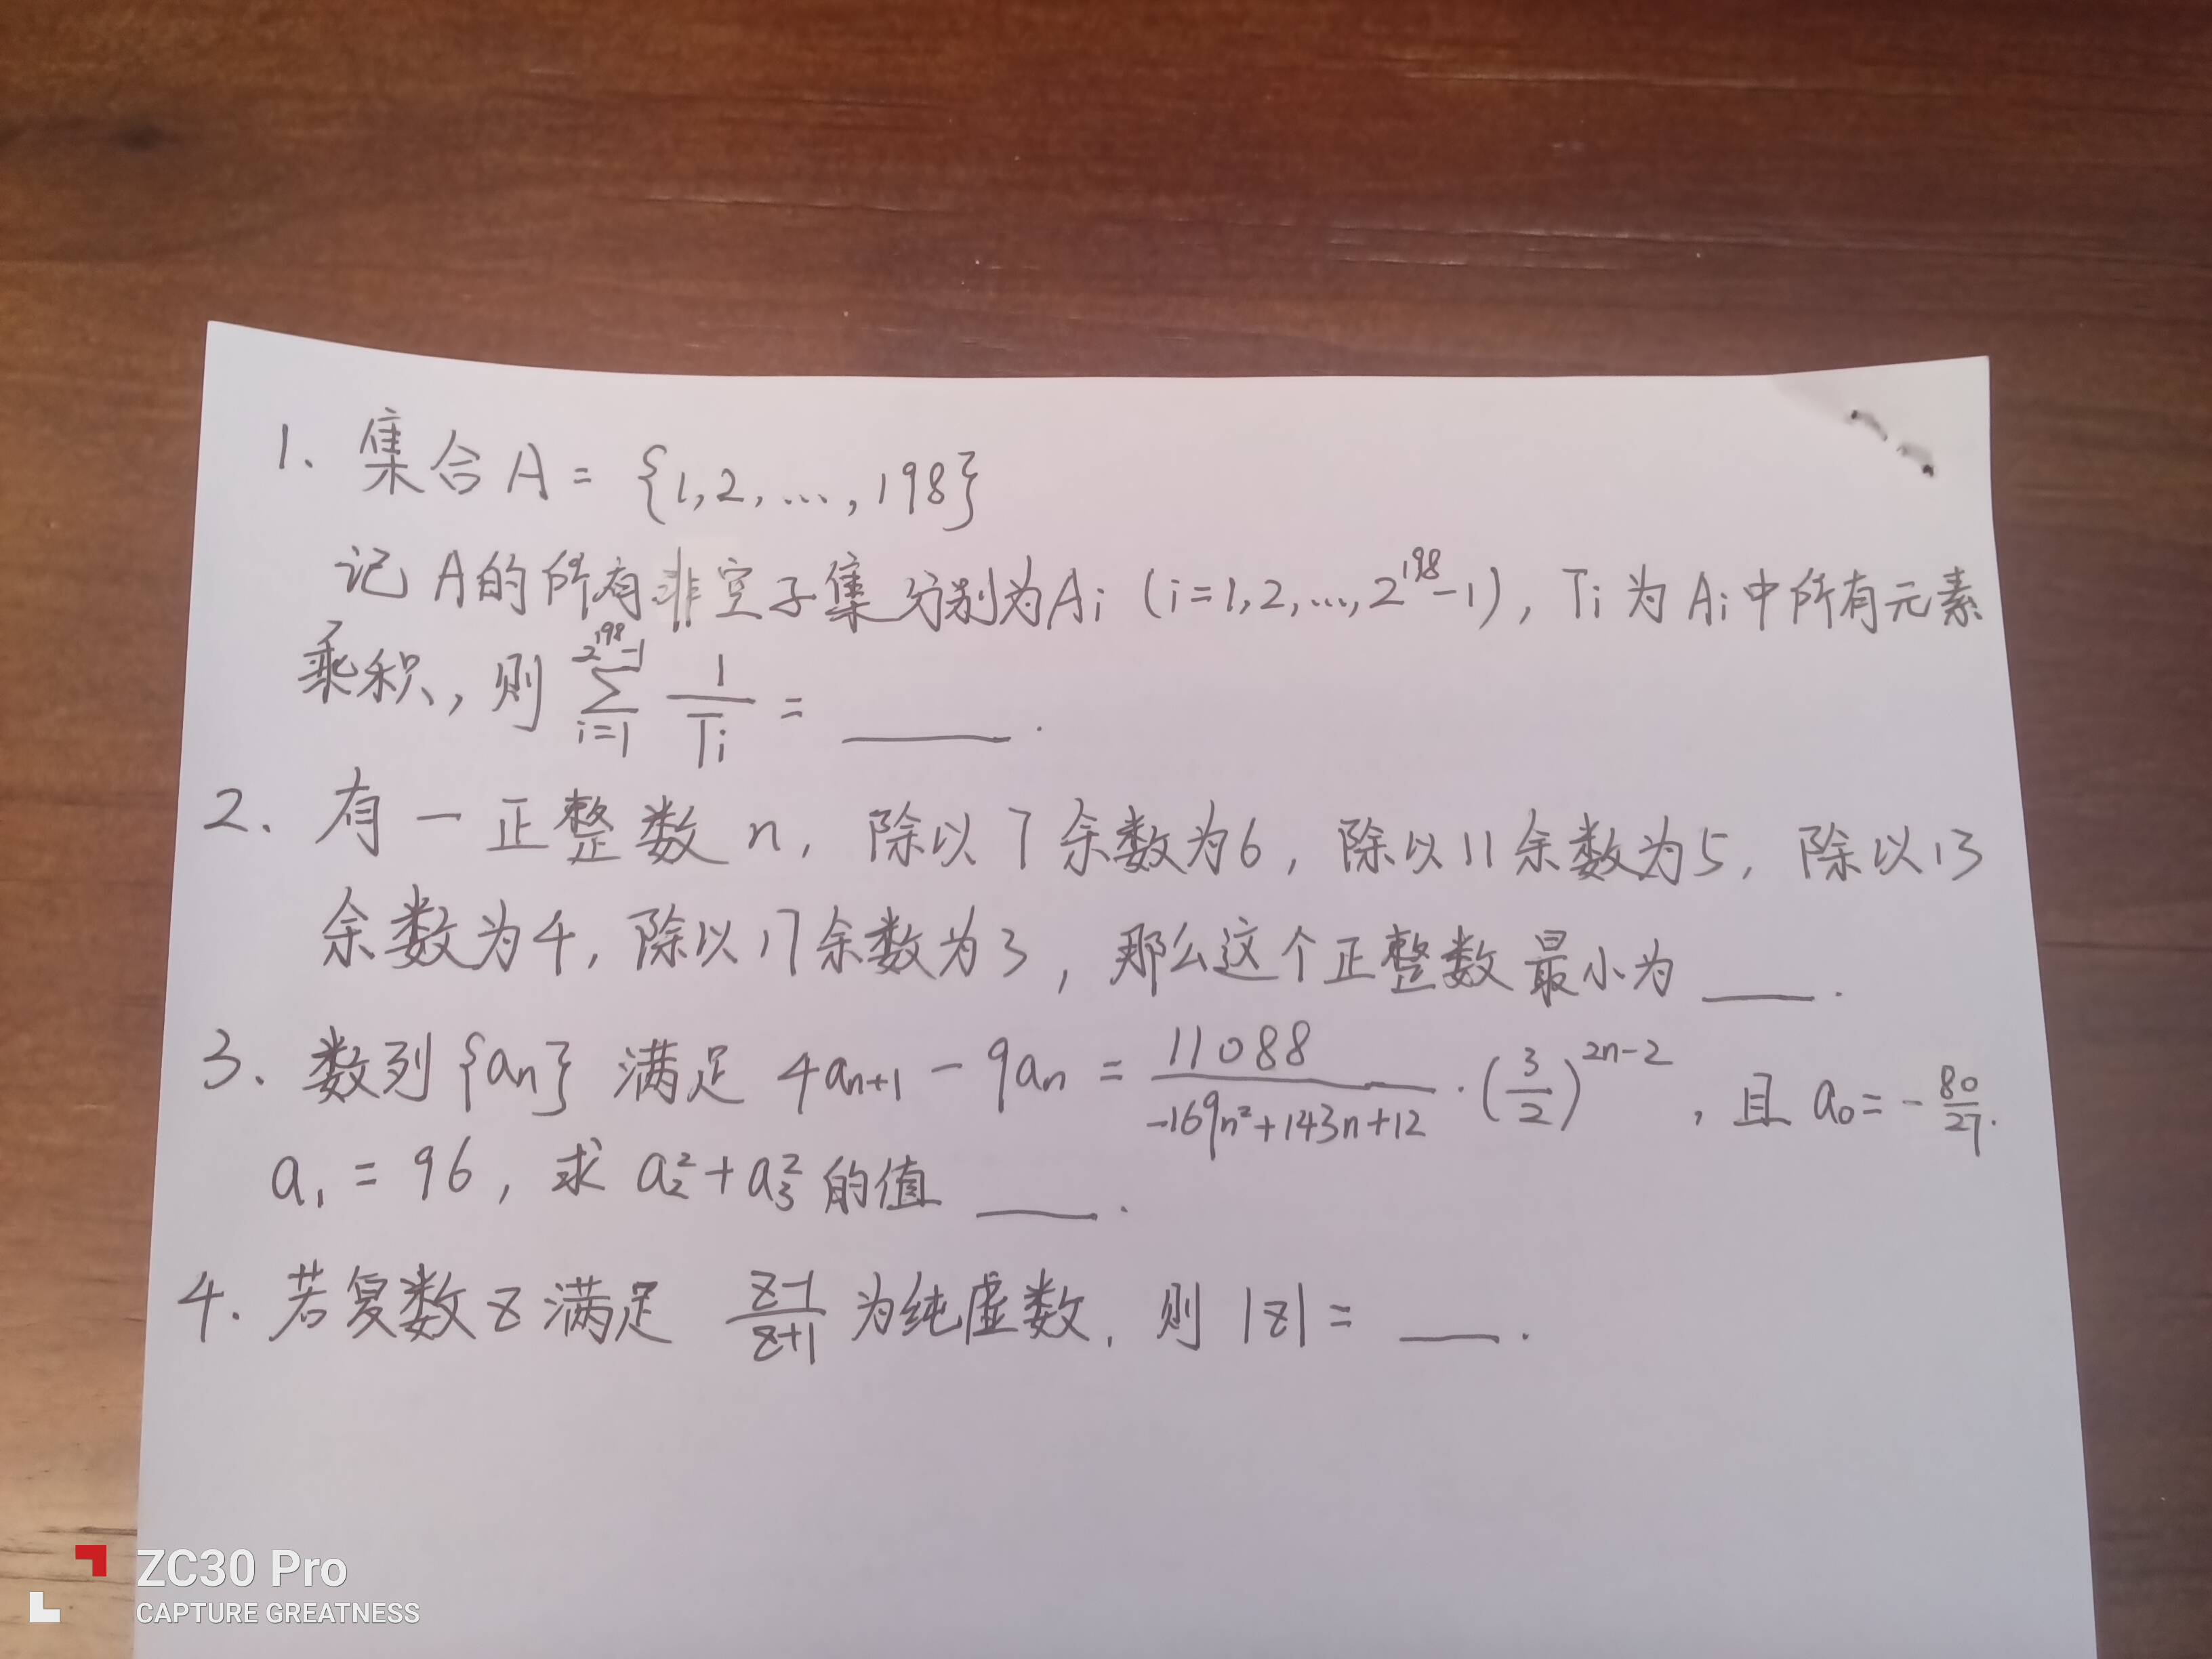 1. 集合A = {1,2,…,198}
记A的所有非空子集分别为Ai (i=1,2,…,2^198-1), Ti为Ai中所有元素
乘积, 则 \sum_{i=1}^{2^{198}-1} \frac{1}{Ti} = ____.
2. 有一正整数n, 除以7余数为6, 除以11余数为5, 除以13
余数为4, 除以17余数为3, 那么这个正整数最小为____.
3. 数列{an} 满足 4a_{n+1} - 9a_n = \frac{11088}{-169n^2+143n+12} · (\frac{3}{2})^{2n-2}, 且 a_0 = -\frac{80}{27}.
a_1 = 96, 求 a_2^2 + a_3^2 的值____.
4. 若复数z满足 \frac{z-1}{z+1} 为纯虚数, 则 |z| = ____.
ZC30 Pro
CAPTURE GREATNESS